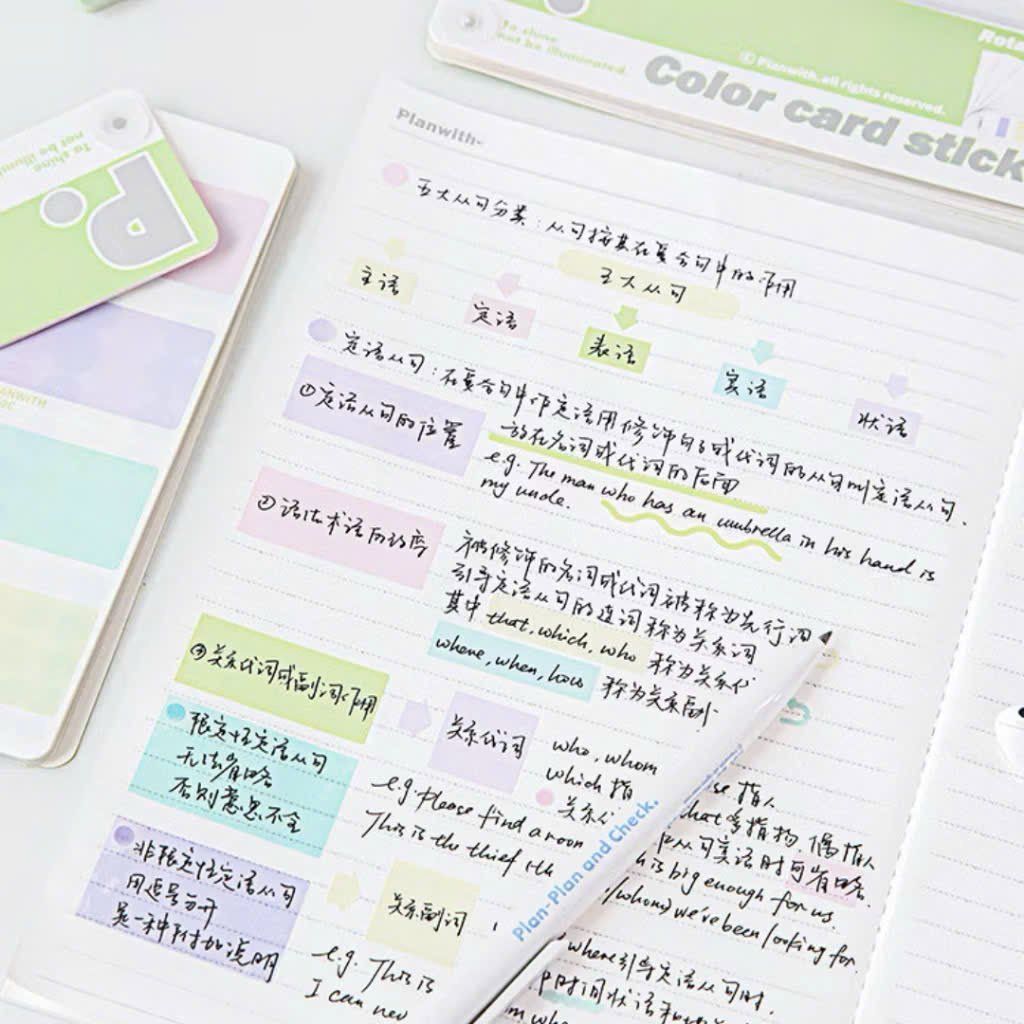 To shine
not be illuminated.
Rota
© Planwith. all rights reserved.
Color card stick
To shine
not be illumi
P.
PLANWITH
Planwith-
五大从句分类：从句按其在复合句中的作用
五大从句
主语
定语
表语
宾语
状语
定语从句：在复合句中作定语用修饰名词或代词的从句叫定语从句.
①定语从句的位置
放在名词或代词的后面
e.g. The man who has an umbrella in his hand is
my uncle.
②语法术语的改变
被修饰的名词或代词被称为先行词
引导定语从句的连词称为关系词
其中 that, which, who 称为关系代
where, when, how 称为关系副
③关系代词或副词作用
关系代词
who, whom
which 指
关系
se. 指人
that 多指物, 偶指人
从句宾语时可省略.
限定性定语从句
无法省略
否则意思不全
e.g. Please find a room
is big enough for us.
This is the thief
/whom) we've been looking for.
非限定性定语从句
用逗号分开
是一种附加说明
关系副词
where引导定语从句时.
时间状语
e.g. This is
I can nev
m where
Plan-Plan and Check.